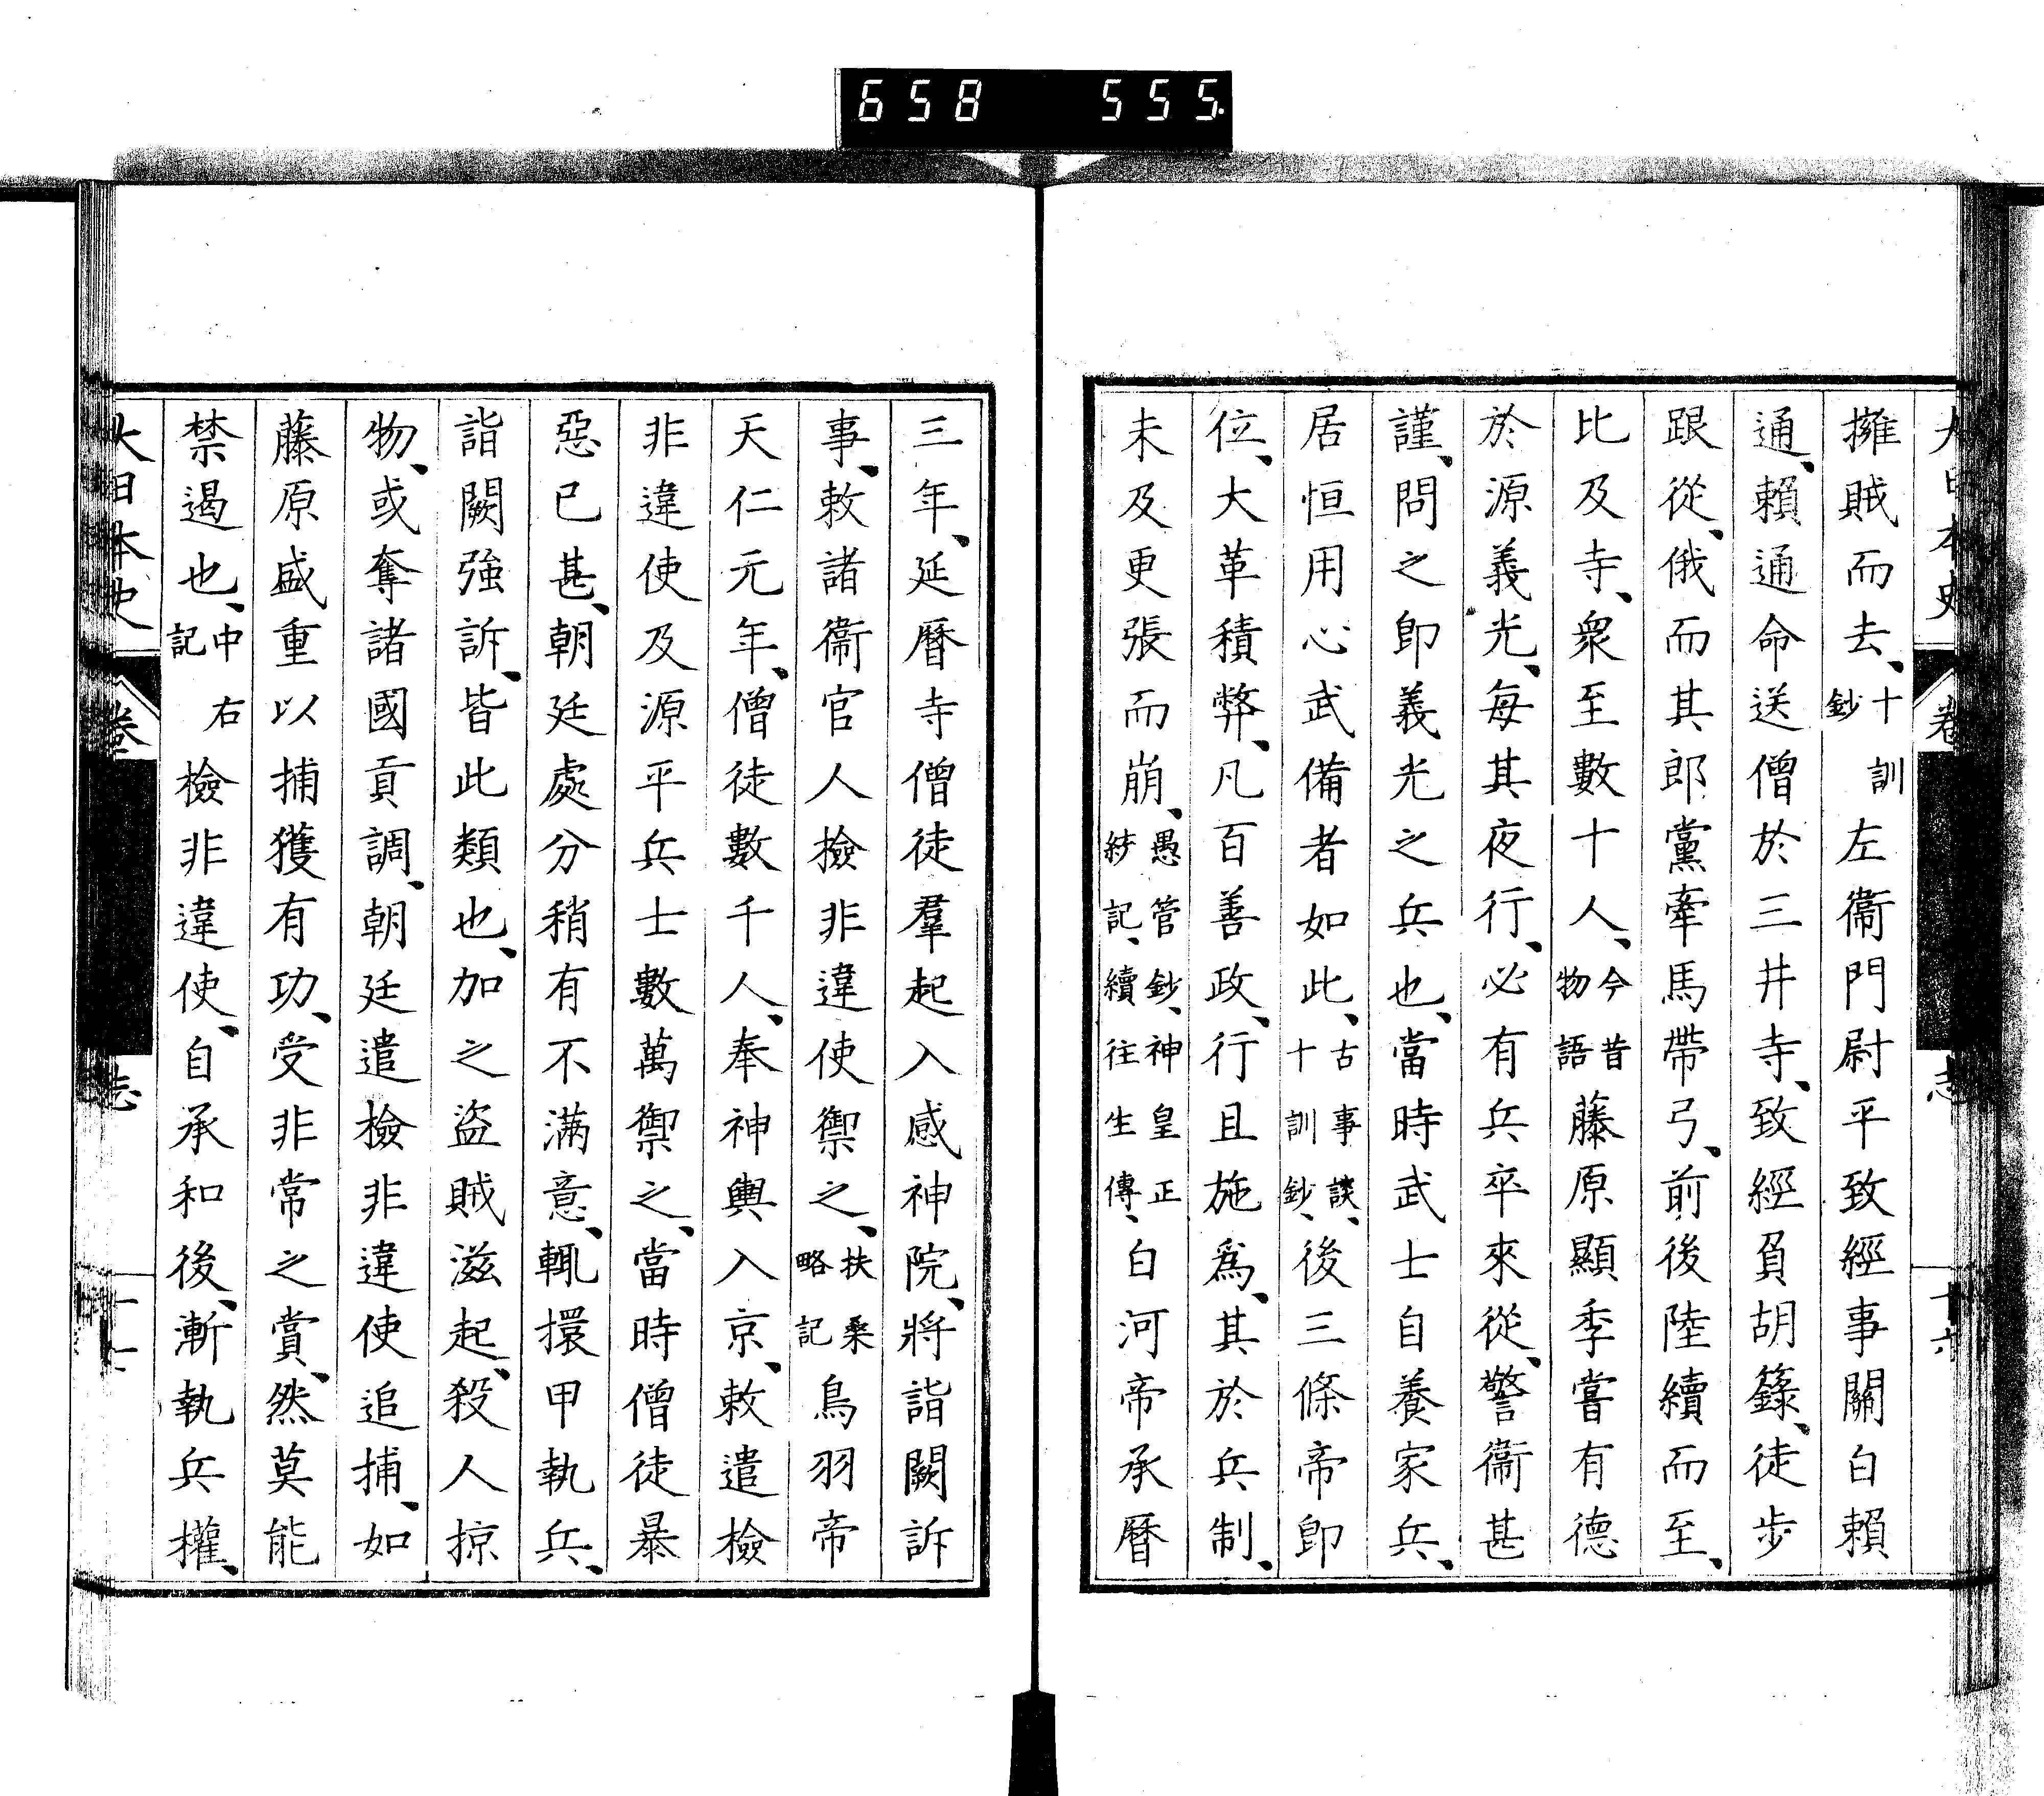 658 555.
擁賊而去、十訓鈔左衞門尉平致經事關白賴
通、賴通命送僧於三井寺、致經負胡籙、徒步
跟從、俄而其郎黨牽馬帶弓、前後陸續而至、
比及寺、衆至數十人、今昔物語藤原顯季嘗有德
於源義光、每其夜行、必有兵卒來從、警衞甚
謹、問之卽義光之兵也、當時武士自養家兵、
居恒用心武備者如此、古事談、十訓鈔、後三條帝卽
位、大革積弊、凡百善政、行且施爲、其於兵制、
未及更張而崩、愚管鈔、神皇正統記、續往生傳、白河帝承曆
三年、延曆寺僧徒羣起入感神院、將詣闕訴
事、敕諸衞官人檢非違使禦之、扶桑略記鳥羽帝
天仁元年、僧徒數千人、奉神輿入京、敕遣檢
非違使及源平兵士數萬禦之、當時僧徒暴
惡已甚、朝廷處分稍有不滿意、輒擐甲執兵、
詣闕強訴、皆此類也、加之盜賊滋起、殺人掠
物、或奪諸國貢調、朝廷遣檢非違使追捕、如
藤原盛重以捕獲有功、受非常之賞、然莫能
禁遏也、中右記檢非違使、自承和後、漸執兵權、
大日本史 卷 志